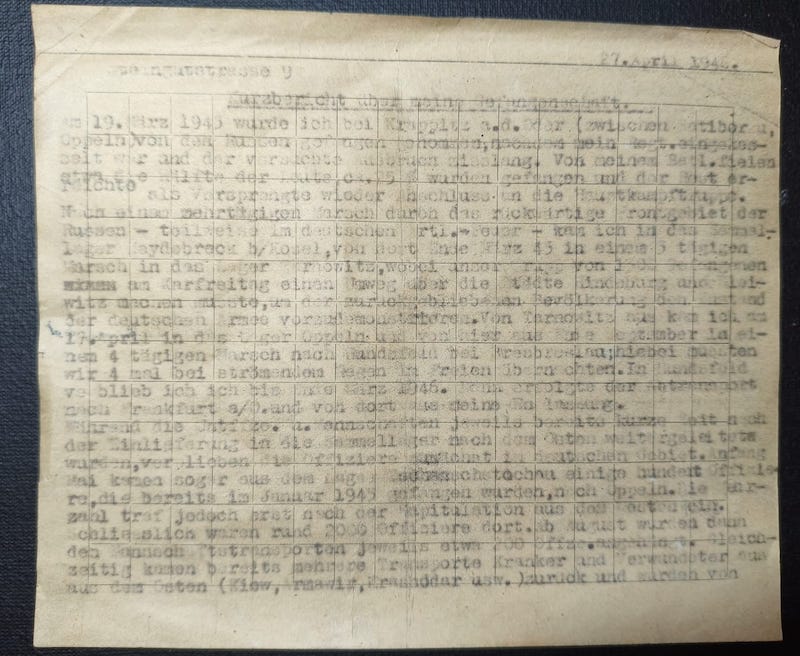 Steingutstrasse 9
27.April 1946.
Kurzbericht über meine Gefangenschaft.
Am 19.März 1945 wurde ich bei Krappitz a.d.Oder (zwischen Ratibor u,
Oppeln)von den Russen gefangen genommen,nachdem mein Regt.eingekes-
selt war und der versuchte Ausbruch misslang. Von meinem Batl.fielen
etwa die Hälfte der Leute,ca. wurden gefangen und der Rest er-
reichte als Versprengte wieder Anschluss an die Hauptkampftruppe.
Nach einem mehrtägigen Marsch durch das rückwärtige Frontgebiet der
Russen - teilweise im deutschen Artl.-Feuer - kam ich in das Sammel-
lager Heydebreck b/Kosel,von dort Ende März 45 in einem 3 tägigen
Marsch in das Lager Tarnowitz,wobei unser von Gefangenen
am Karfreitag einen Umweg über die Städte Hindenburg und Glei-
witz machen musste,um der zurückgebliebenen Bevölkerung den Zustand
der deutschen Armee vorzudemonstrieren.Von Tarnowitz aus kam ich am
17.April in das Lager Oppeln und von hier aus Ende September in ei-
nem 4 tägigen Marsch nach Hundsfeld bei Breslau;hiebei mussten
wir 4 mal bei strömendem Regen im Freien übernachten.In Hundsfeld
ve blieb ich bis Ende März 1946. Dann erfolgte der Abtransport
nach Frankfurt a/O.und von dort aus meine Entlassung.
Während die Untffze. u. Mannschaften jeweils bereits kurze Zeit nach
der Einlieferung in die Sammellager nach dem Osten weitergeleitet
wurden,verblieben die Offiziere zunächst in deutschem Gebiet.Anfang
Mai kamen sogar aus dem Lager Tschenstochau einige hundert Offizie-
re,die bereits im Januar 1945 gefangen wurden,nach Oppeln.Die Mehr-
zahl traf jedoch erst nach der Kapitulation aus dem Westen ein.
Schliesslich waren rund 2000 Offiziere dort.Ab August wurden dann
den Mannschaftstransporten jeweils etwa 200 Offze. Gleich-
zeitig kamen bereits mehrere Transporte Kranker und Verwundeter aus
aus dem Osten (Kiew,Armawir,Krasnodar usw.)zurück und wurden von